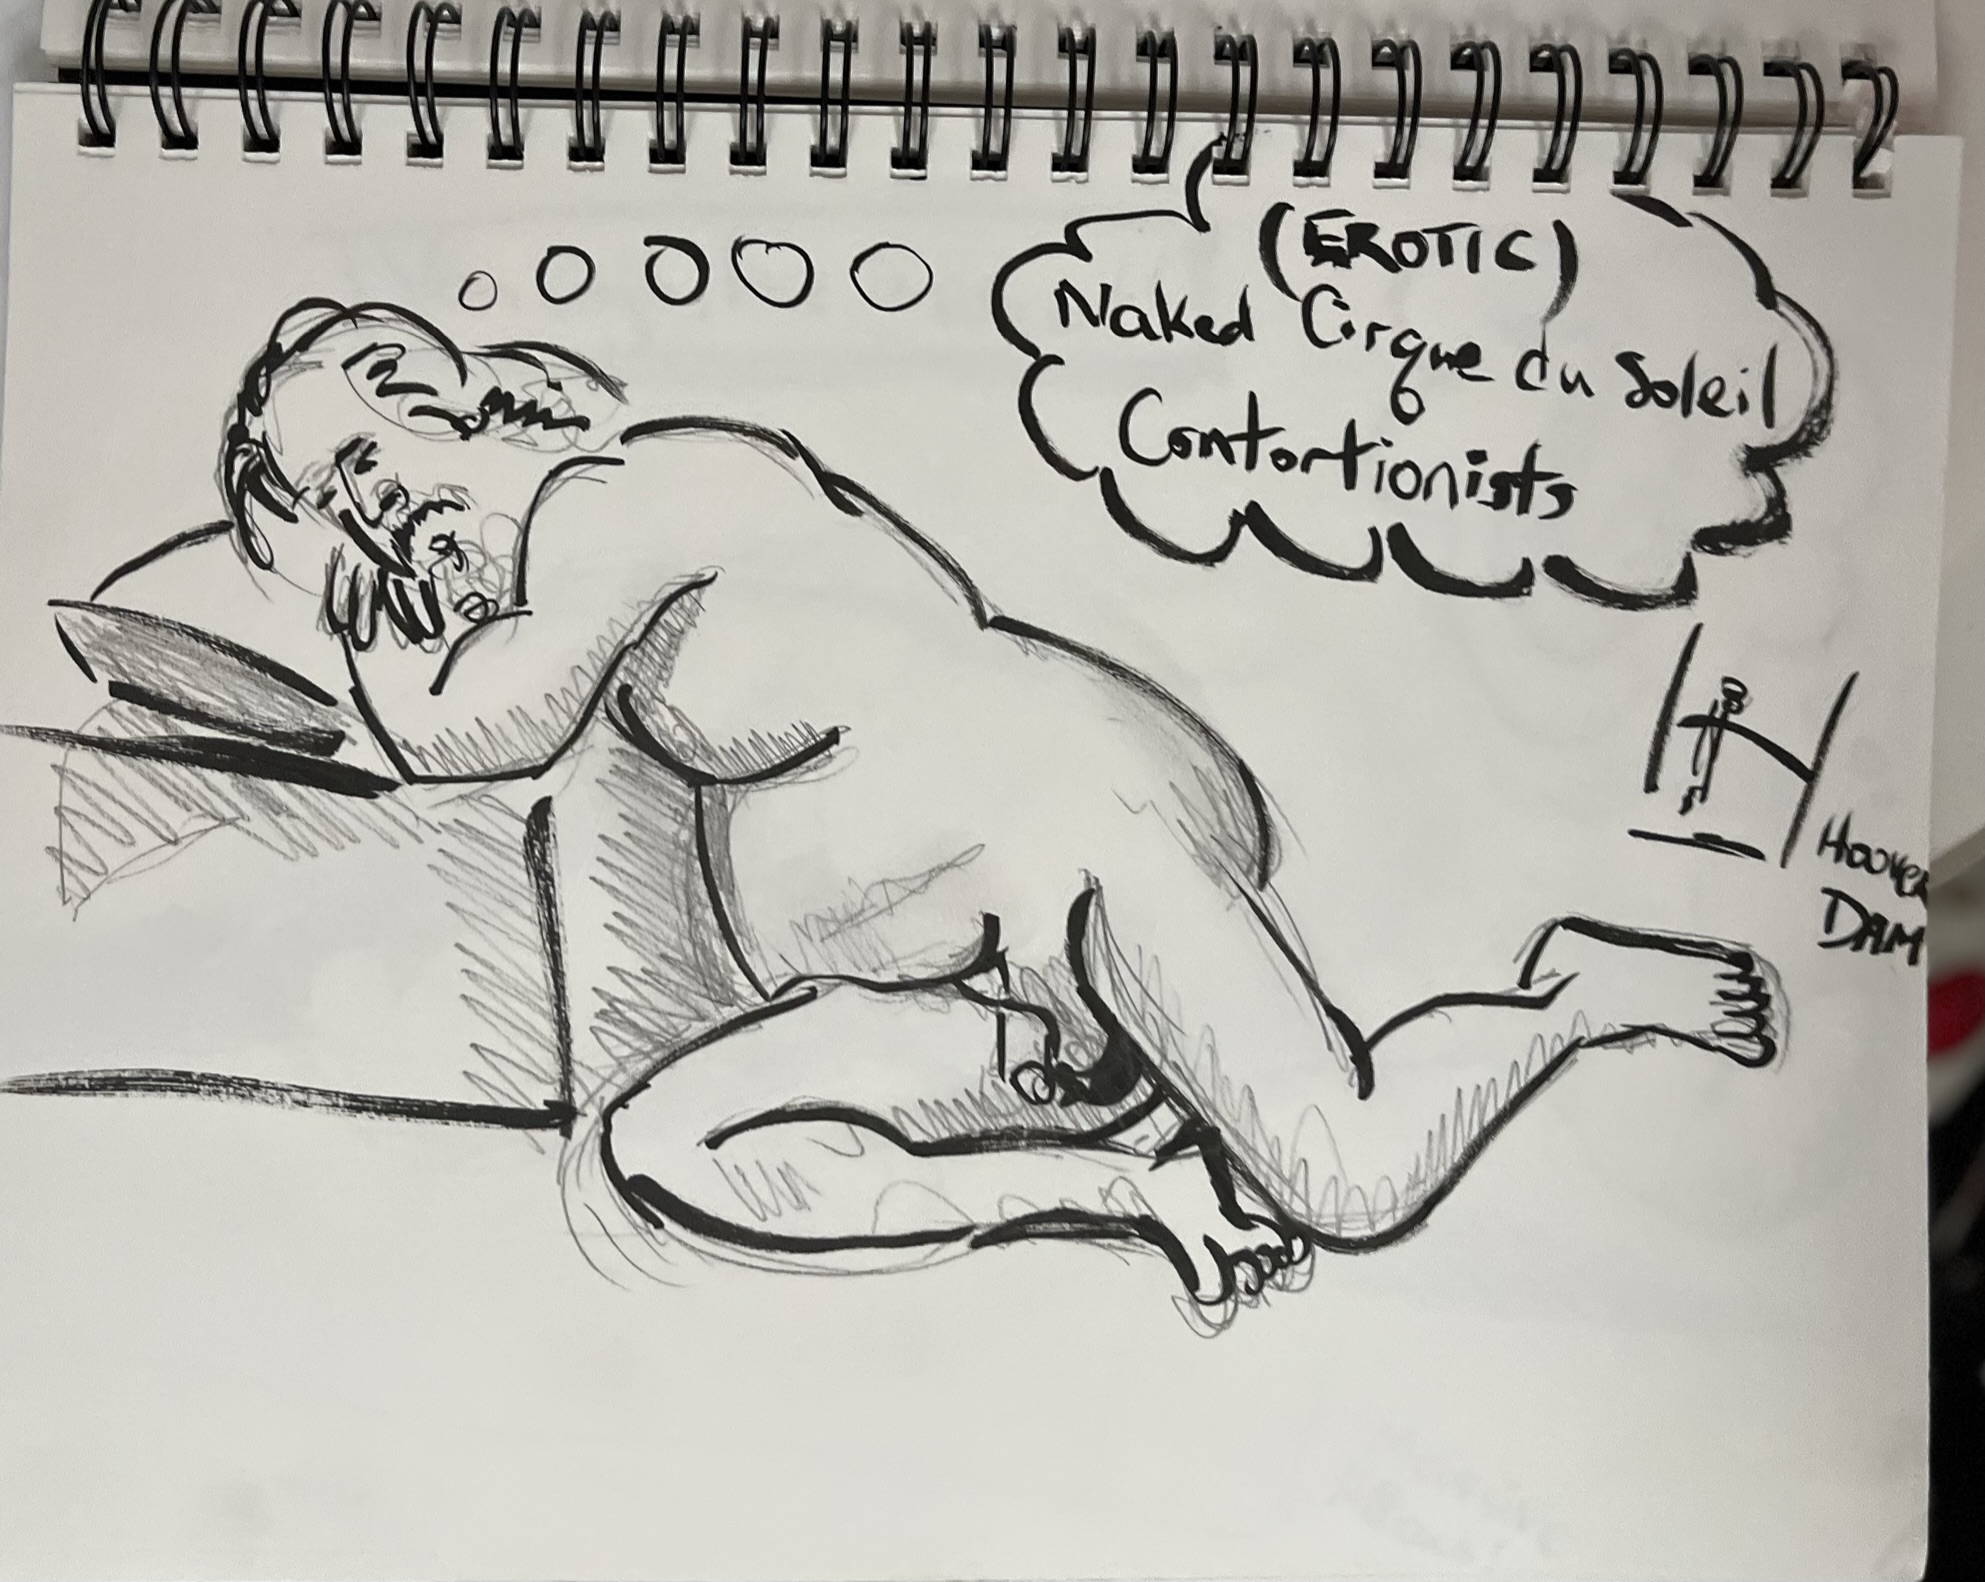 (EROTIC)
Naked Cirque du Soleil
Contortionists
Hoover
DAM